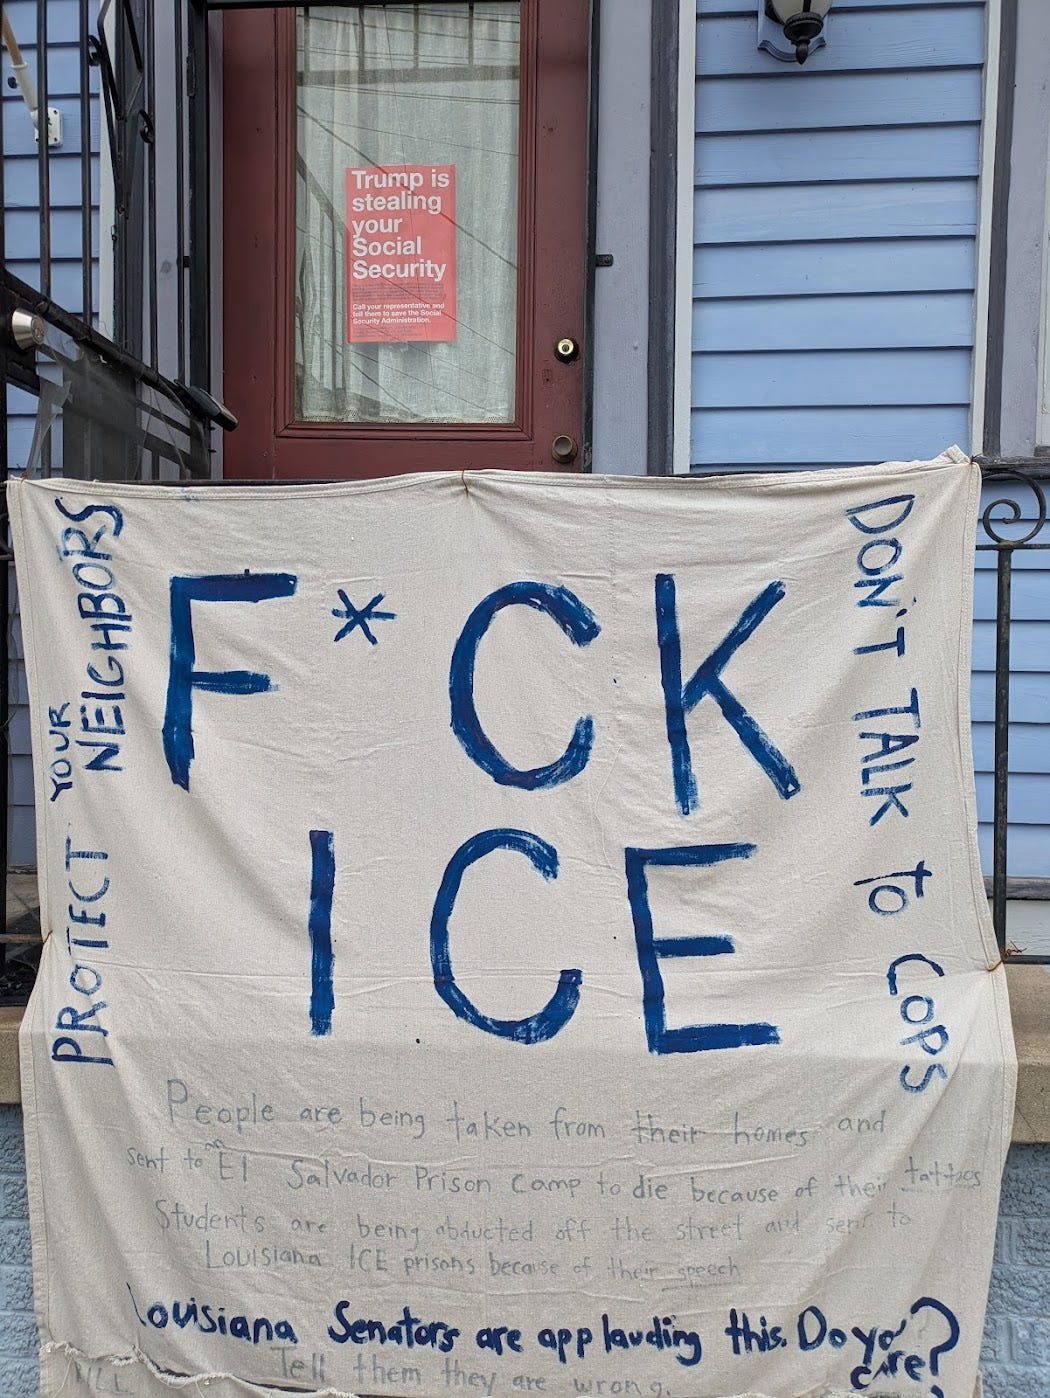 Trump is
stealing
your
Social
Security
Call your representative and
tell them to save the Social
Security Administration.
PROTECT YOUR NEIGHBORS
F*CK
ICE
DON'T TALK to COPS
People are being taken from their homes and
sent to an El Salvador Prison Camp to die because of their tattoos
Students are being abducted off the street and sent to
Louisiana ICE prisons because of their speech
Louisiana Senators are applauding this. Do you care?
Tell them they are wrong.